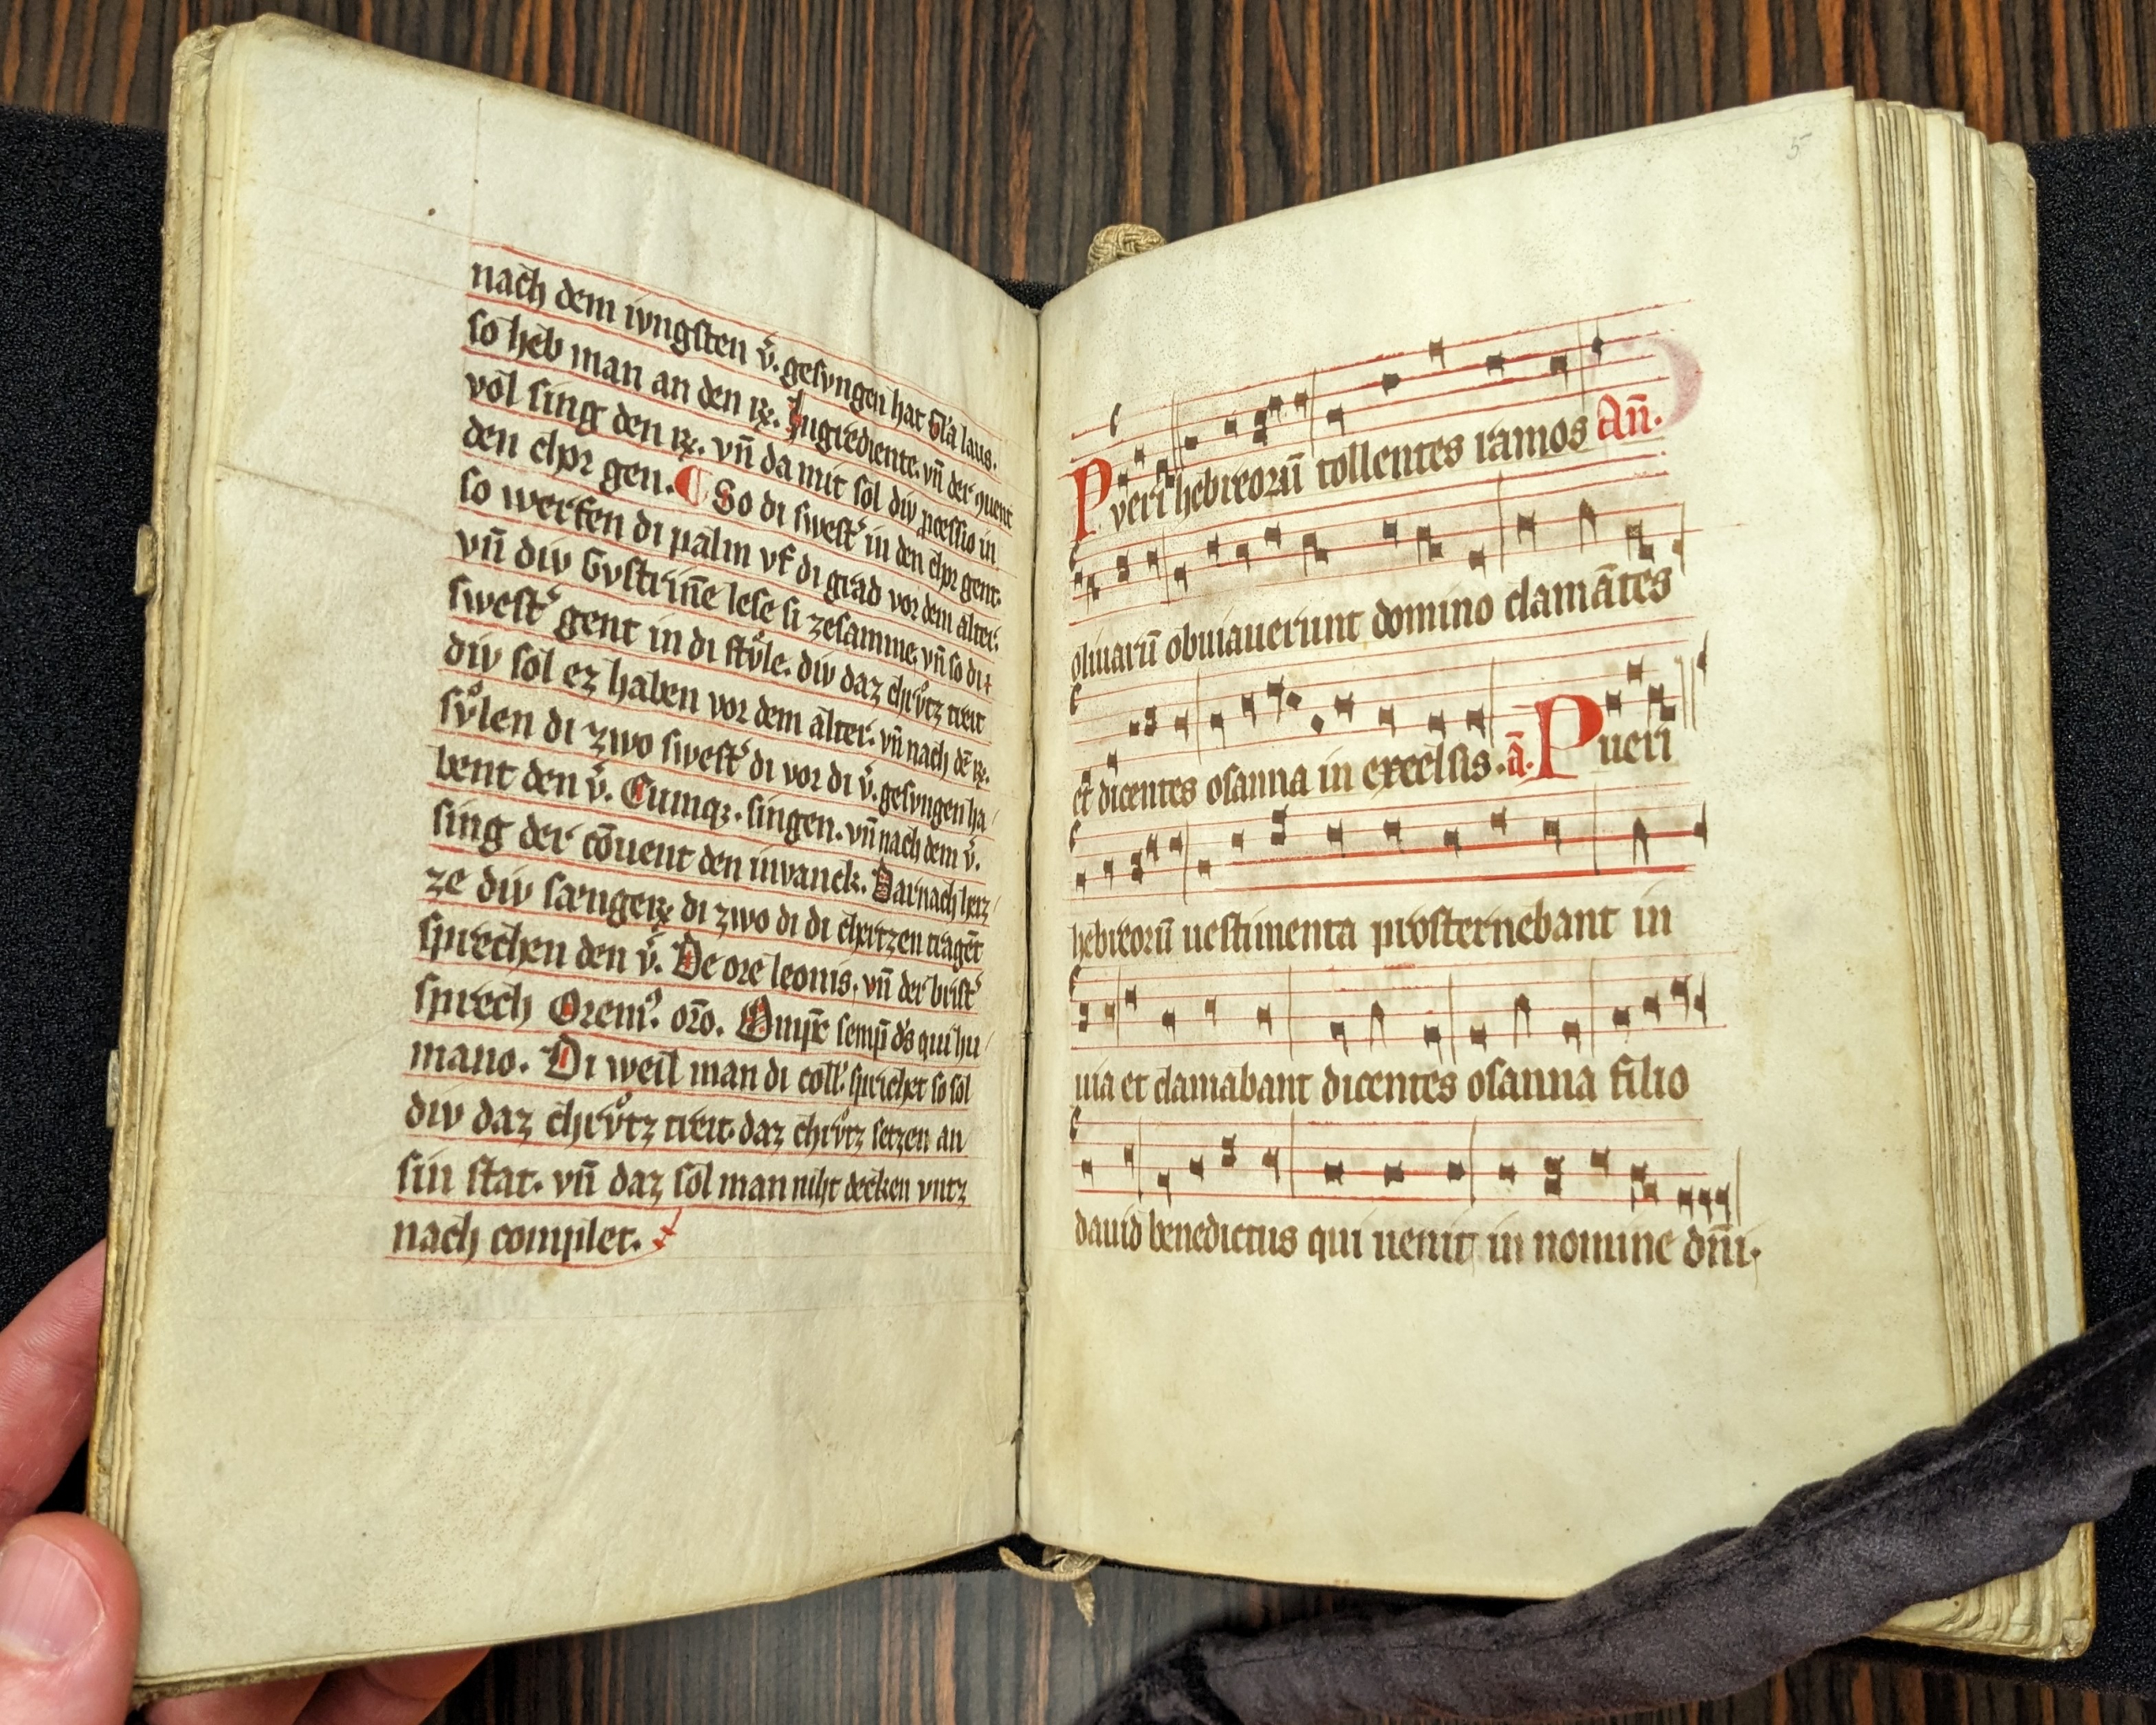 nach dem ivngsten v̄. gesvngen hat Gl̄a laus.
so heb man an den ꝶ. Ingrediente. vn̄ der quent
vol sing den ꝶ. vn̄ da mit sol div ꝓcessio in
den chor gen. ¶ So di swest᷒ in den chor gent.
so werfen di palm vf di grad vor dem alter.
vn̄ div Gvstrin̄e lese si zesamme. vn̄ so di
swest᷒ gent in di stv̊le. div daz chrv̊tz treit
div sol ez haben vor dem alter. vn̄ nach dē ꝶ.
sv̊len di zwo swest᷒ di vor di v̄. gesvngen ha
bent den v̄. Cumqꝫ. singen. vn̄ nach dem v̄.
sing der cōuent den invanck. Darnach herz
ze div sængerꝶ di zwo di di chertzen tragēt
sprechen den v̄. De ore leonis. vn̄ der brist᷒
sprech Oremꝰ. or̄o. Omp̄e semꝑ d̄s qui hu
mano. Di weil man di coll̄. sprichet so sol
div daz chrv̊tz treit. daz chrv̊tz setzen an
sin stat. vn̄ daz sol man niht decken vntz
nach complet.
5
Pveri hebreorū tollentes ramos An̄.
oliuarū obuiauerunt domino clamātes
et dicentes osanna in excelsis. ā. Pueri
hebreorū uestimenta prosternebant in
uia et clamabant dicentes osanna filio
dauid benedictus qui uenit in nomine dn̄i.